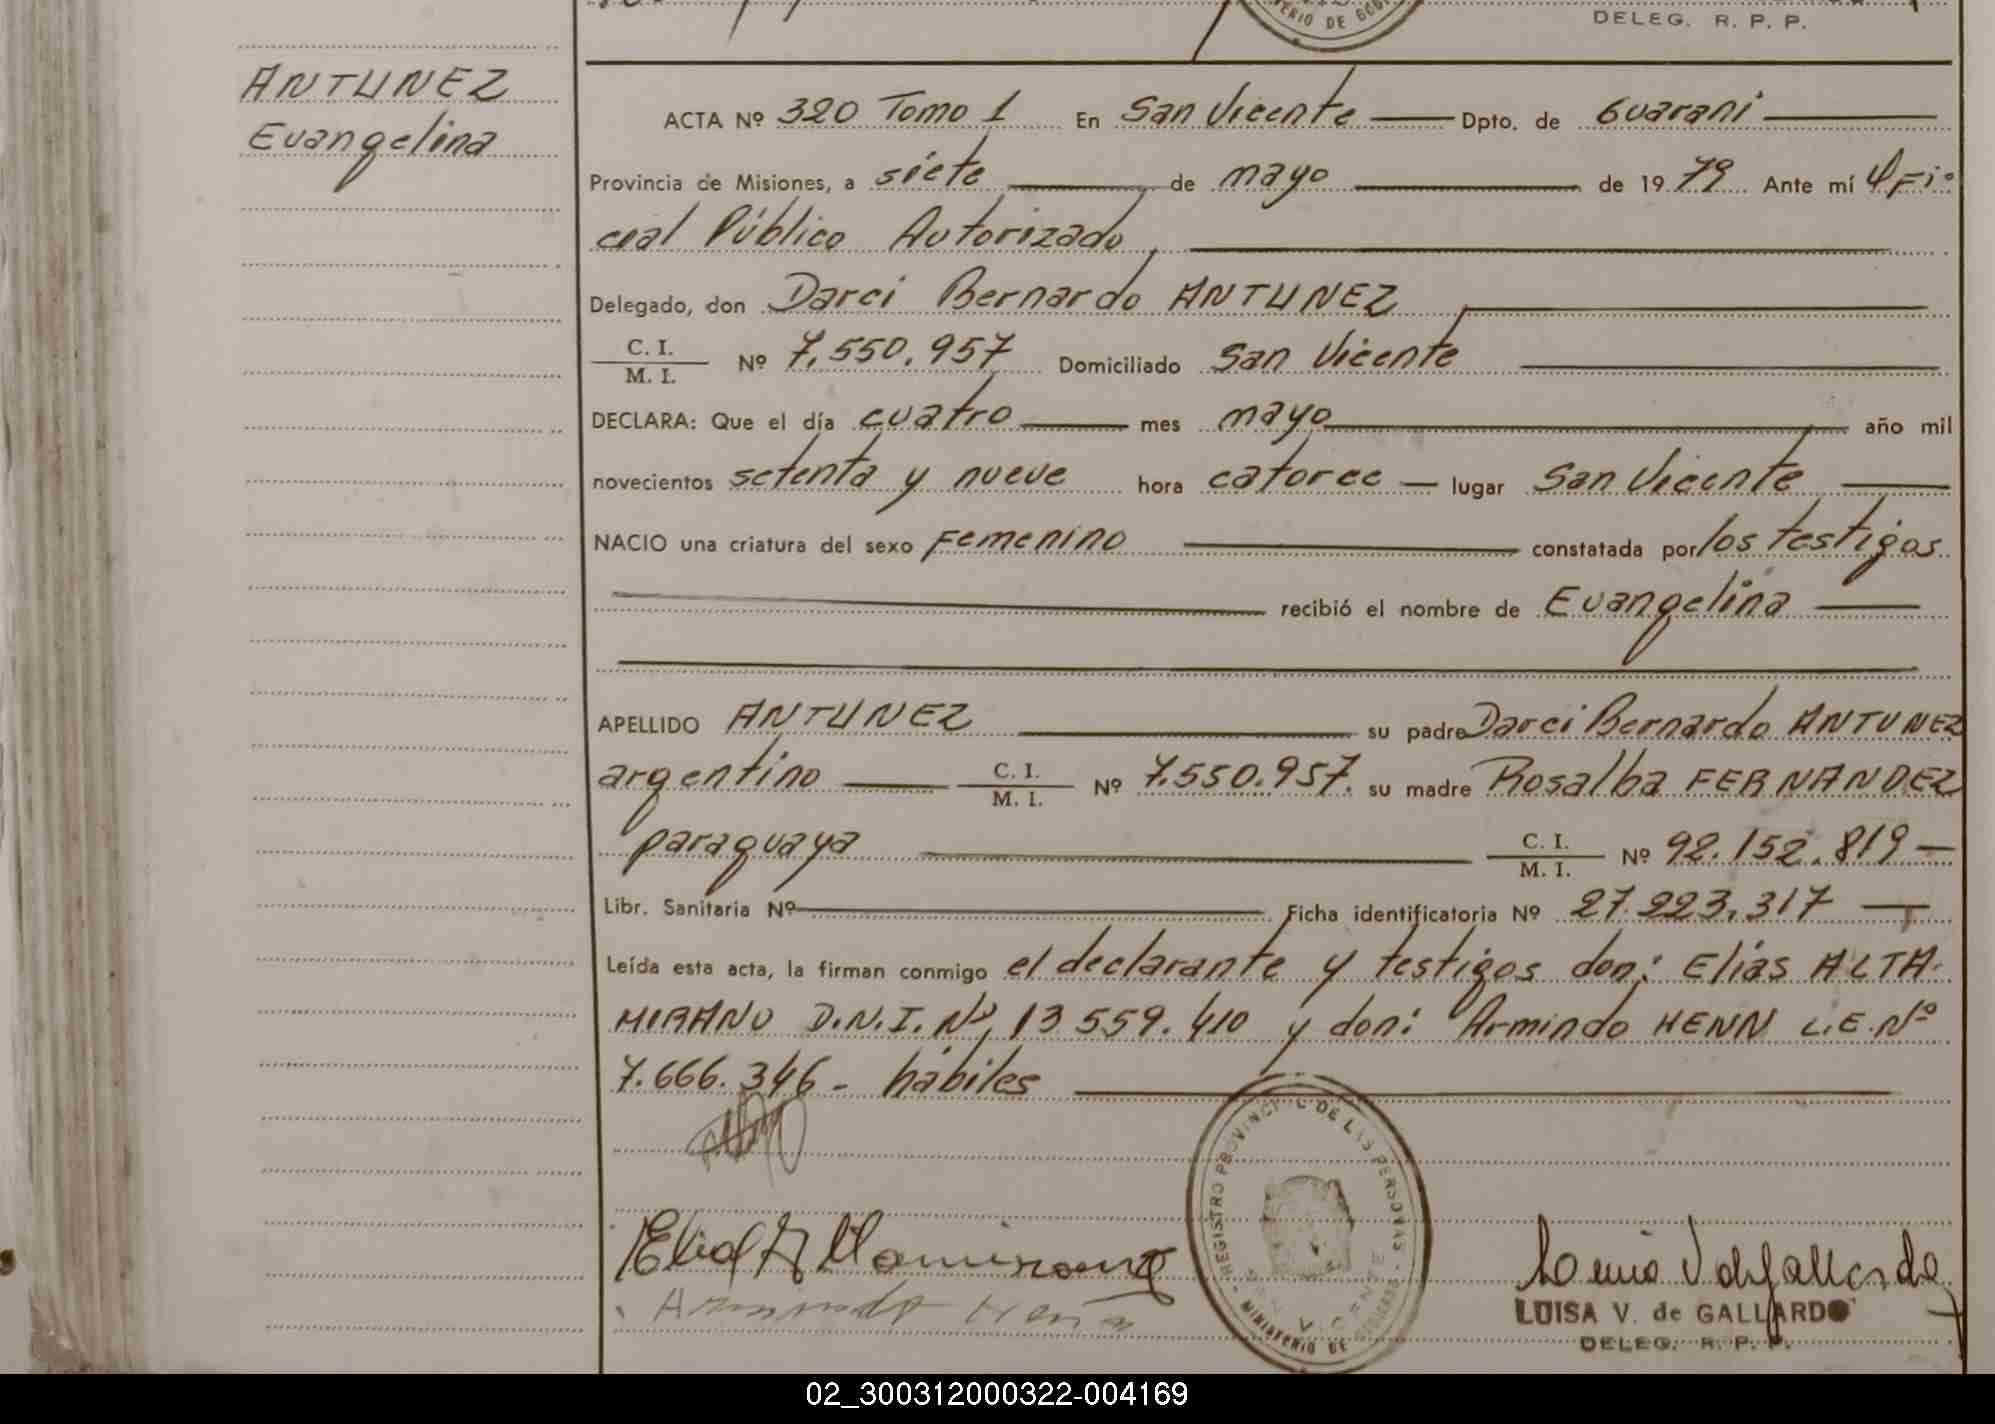 DELEG. R. P. P.
ANTUNEZ
Evangelina
ACTA Nº 320 Tomo 1 En San Vicente Dpto. de Guarani
Provincia de Misiones, a siete de mayo de 1979 Ante mí Ofi-
cial Público Autorizado
Delegado, don Darci Bernardo ANTUNEZ
C. I.
M. I. Nº 7.550.957 Domiciliado San Vicente
DECLARA: Que el día cuatro mes mayo año mil
novecientos setenta y nueve hora catorce lugar San Vicente
NACIO una criatura del sexo Femenino constatada por los testigos
recibió el nombre de Evangelina
APELLIDO ANTUNEZ su padre Darci Bernardo ANTUNEZ
argentino C. I.
M. I. Nº 7.550.957. su madre Rosalba FERNANDEZ
paraguaya C. I.
M. I. Nº 92.152.819
Libr. Sanitaria Nº Ficha identificatoria Nº 27.223.317
Leída esta acta, la firman conmigo el declarante y testigos don: Elías ALTA-
MIRANO D.N.I. Nº 13 559.410 y don: Armindo HENN L.E. Nº
7.666.346 - hábiles
REGISTRO PROVINCIAL DE LAS PERSONAS - MINISTERIO DE GOBIERNO
SAN VICENTE
LUISA V. de GALLARDO
DELEG. R. P. P.
02_300312000322-004169